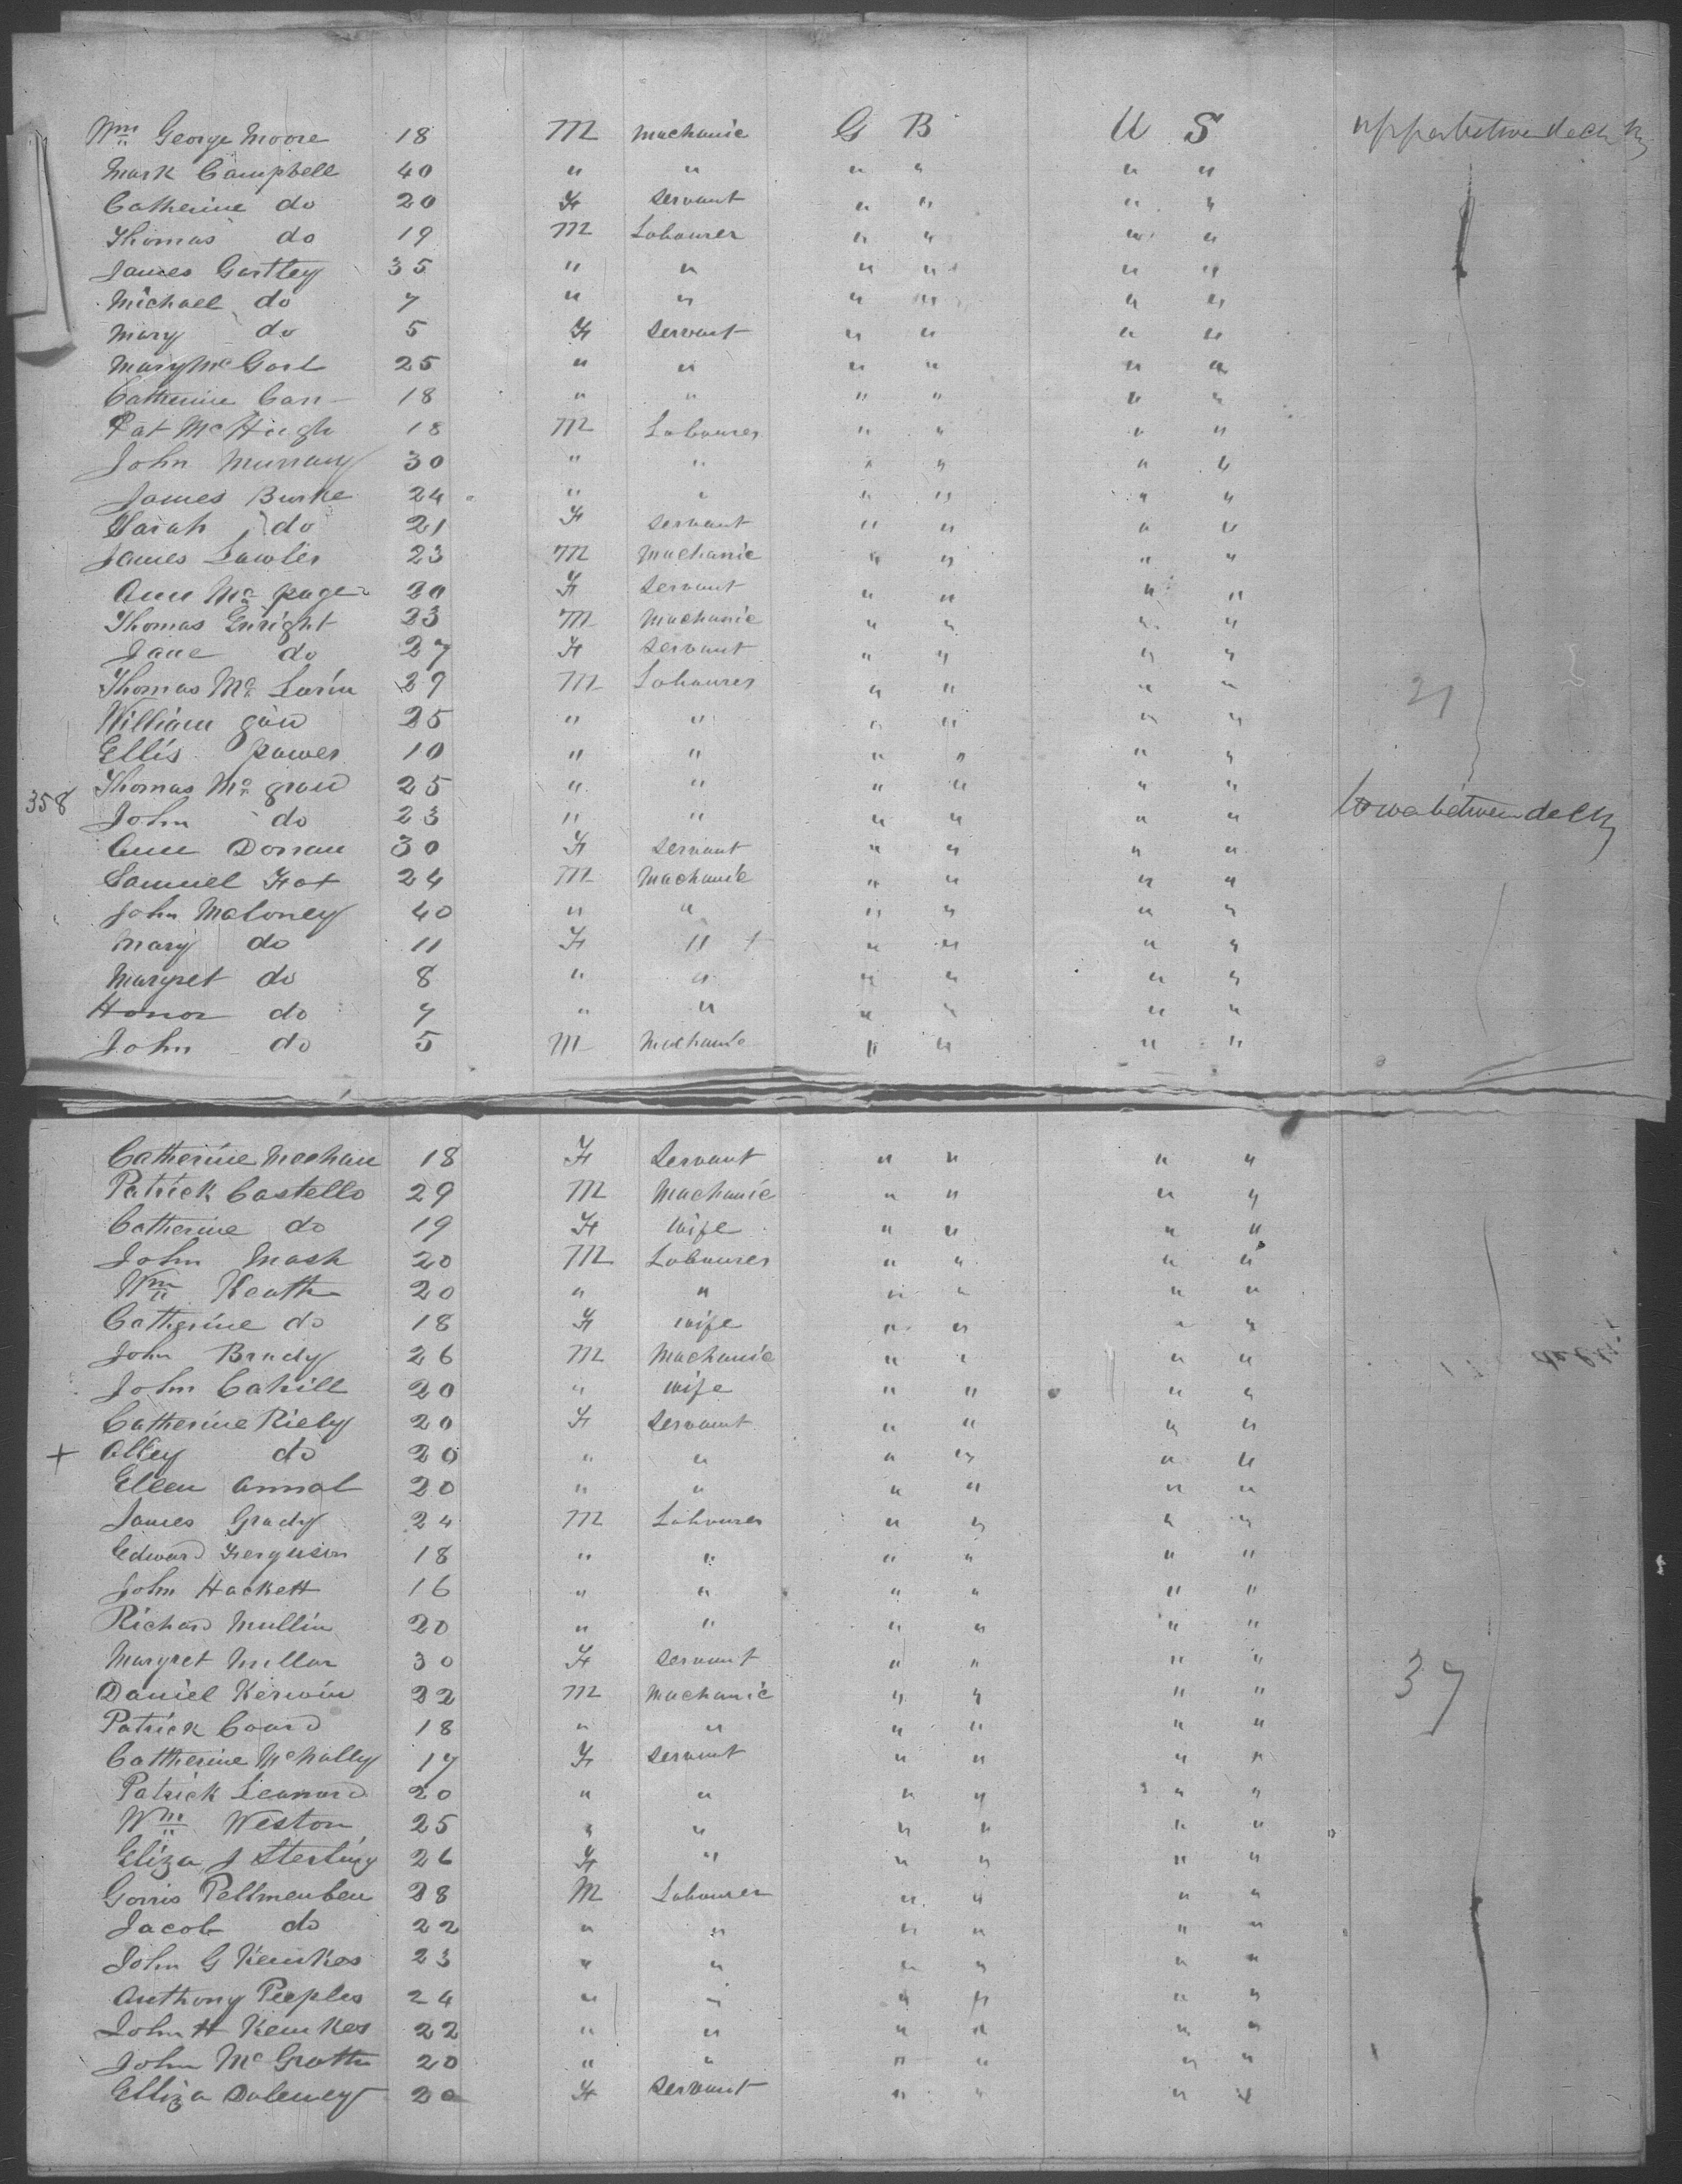 Wm George Moore 18 M mechanic G B U S upperbetwendeck
Mark Campbell 40 " " " " " "
Catherine do 20 F servant " " " "
Thomas do 19 M Labourer " " " "
James Gartley 35 " " " " " "
Michael do 7 " " " " " "
Mary do 5 F servant " " " "
Mary Mc 25 " " " " " "
Catherine Carr 18 " " " " " "
Pat McHugh 18 M Labourer " " " "
John Murray 30 " " " " " "
James Burke 24 " " " " " "
Sarah do 21 F servant " " " "
James Lawler 23 M Mechanic " " " "
Ann Mc page 20 F servant " " " "
Thomas Enright 23 M Mechanic " " " "
Jane do 27 F servant " " " "
Thomas Mc 29 M Labourer " " " " 21
William 25 " " " " " "
Ellis power 10 " " " " " "
358 Thomas Mc 25 " " " " " "
John do 23 " " " " " " betweendeck
Ann Dorran 30 F servant " " " "
Samuel 24 M Machanic " " " "
John Maloney 40 " " " " " "
Mary do 11 F " + " " " "
Margret do 8 " " " " " "
Honor do 7 " " " " " "
John do 5 M Machanic " " " "
Catherine Meehan 18 F Servant " " " "
Patrick Costello 29 M Machanic " " " "
Catherine do 19 F Wife " " " "
John Mash 20 M Labourer " " " "
Wm Keath 20 " " " " " "
Catherine do 18 F wife " " " "
John Brady 26 M Machanic " " " "
John Cahill 20 " wife " " " "
Catherine Riely 20 F servant " " " "
+ Alley do 20 " " " " " "
Ellen 20 " " " " " "
James Grady 24 M Labourer " " " "
Edward Ferguson 18 " " " " " "
John Hackett 16 " " " " " "
Richard Mullin 20 " " " " " "
Margret Millar 30 F servant " " " "
Daniel Kerwin 22 M Machanic " " " " 37
Patrick 18 " " " " " "
Cattherine McNally 17 F servant " " " "
Patrick Leonard 20 " " " " " "
Wm Weston 25 " " " " " "
Eliza J Sterling 26 F " " " " "
28 M Labourer " " " "
Jacob do 22 " " " " " "
John G Kemkes 23 " " " " " "
Anthony Peeples 24 " " " " " "
John H Kemkes 22 " " " " " "
John McGrath 20 " " " " " "
Elliza 20 F servant " " " "